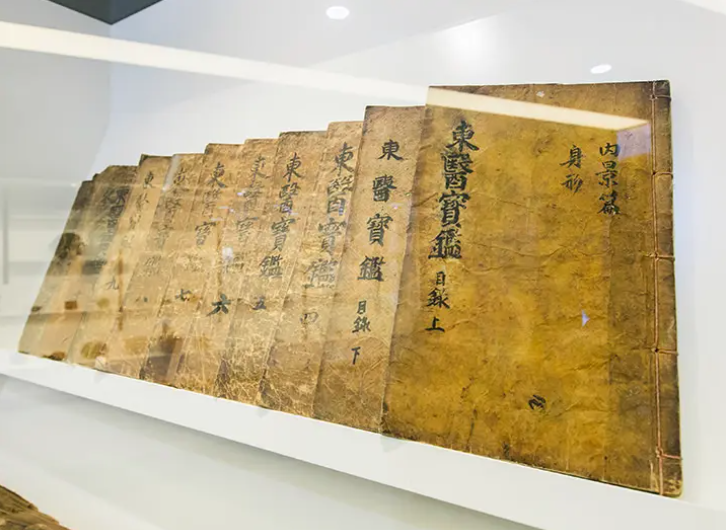 內景篇
身形
東醫寶鑑 目錄 上
東醫寶鑑 目錄 下
東醫寶鑑 四
東醫寶鑑 五
東醫寶鑑 六
東醫寶 七
東醫寶鑑 八
九